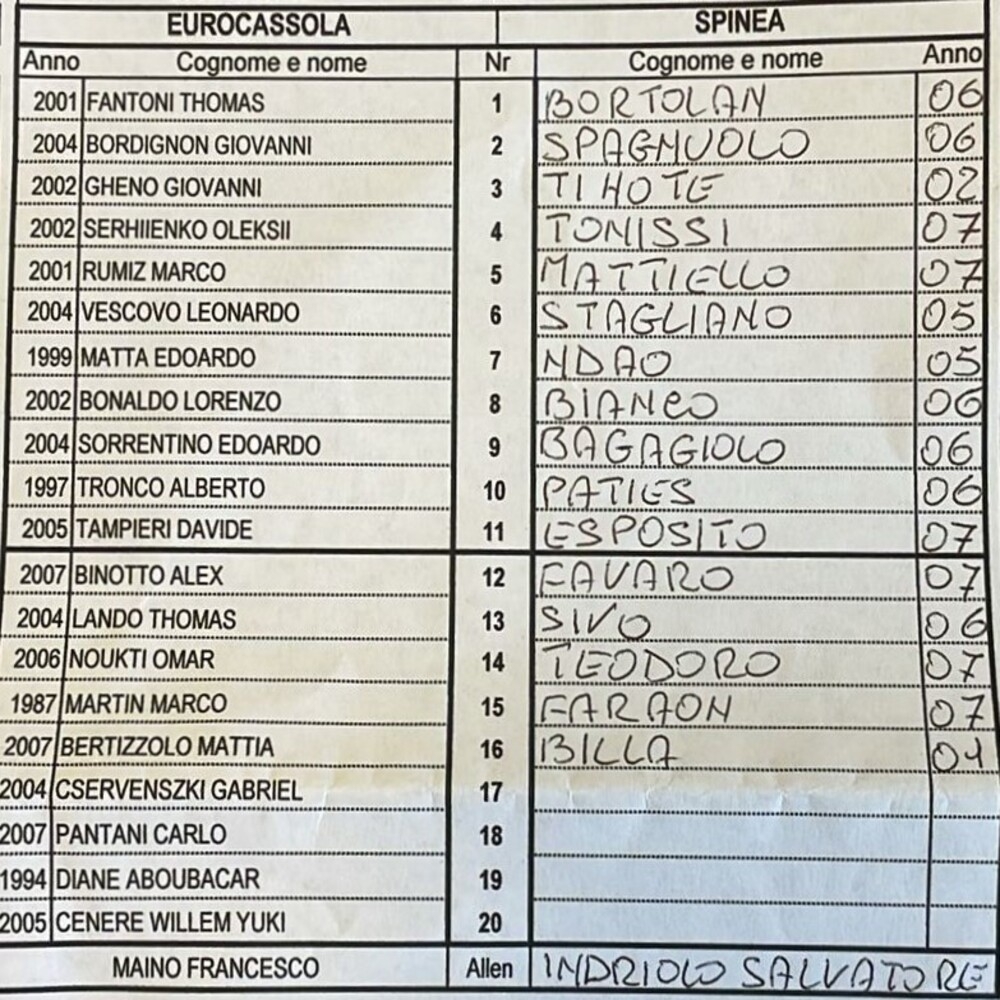 EUROCASSOLA SPINEA
Anno Cognome e nome Nr Cognome e nome Anno
2001 FANTONI THOMAS 1 BORTOLAN 06
2004 BORDIGNON GIOVANNI 2 SPAGNUOLO 06
2002 GHENO GIOVANNI 3 TIHOTE 02
2002 SERHIIENKO OLEKSII 4 TONISSI 07
2001 RUMIZ MARCO 5 MATTIELLO 07
2004 VESCOVO LEONARDO 6 STAGLIANO 05
1999 MATTA EDOARDO 7 NDAO 05
2002 BONALDO LORENZO 8 BIANCO 06
2004 SORRENTINO EDOARDO 9 BAGAGIOLO 06
1997 TRONCO ALBERTO 10 PATIES 06
2005 TAMPIERI DAVIDE 11 ESPOSITO 07
2007 BINOTTO ALEX 12 FAVARO 07
2004 LANDO THOMAS 13 SIVO 06
2006 NOUKTI OMAR 14 TEODORO 07
1987 MARTIN MARCO 15 FARAON 07
2007 BERTIZZOLO MATTIA 16 BILLA 04
2004 CSERVENSZKI GABRIEL 17
2007 PANTANI CARLO 18
1994 DIANE ABOUBACAR 19
2005 CENERE WILLEM YUKI 20
MAINO FRANCESCO Allen INDRIOLO SALVATORE